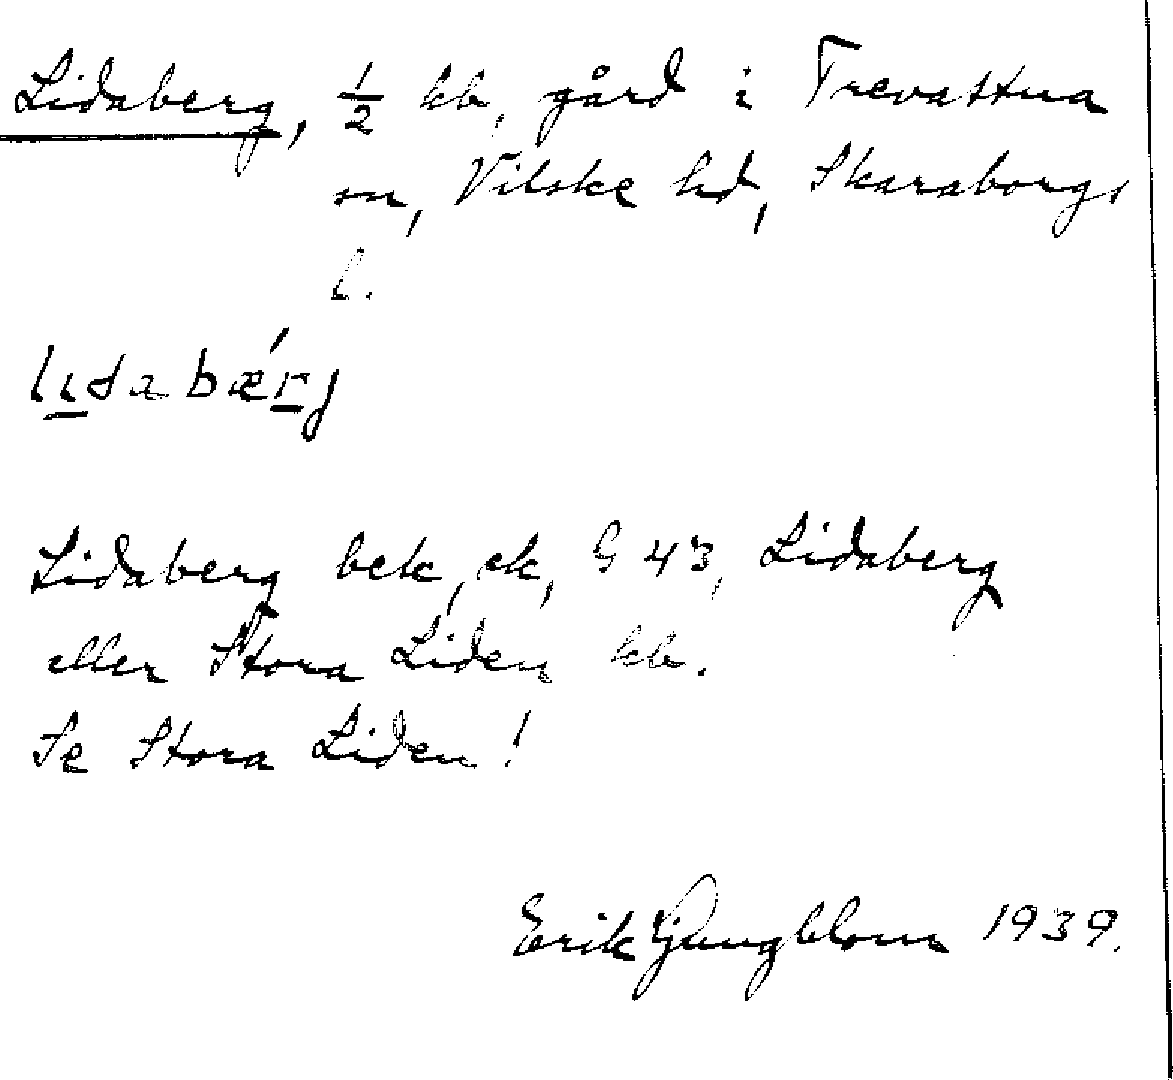 Lidaberg, 1/2 kb, gård i Trevattna
sn, Vilske hd, Skaraborgs
l.
lıdabǽrj
Lidaberg bek, ek, G 43, Lidaberg
eller Stora Liden kb.
Se Stora Liden!
Erik Ljungblom 1939.